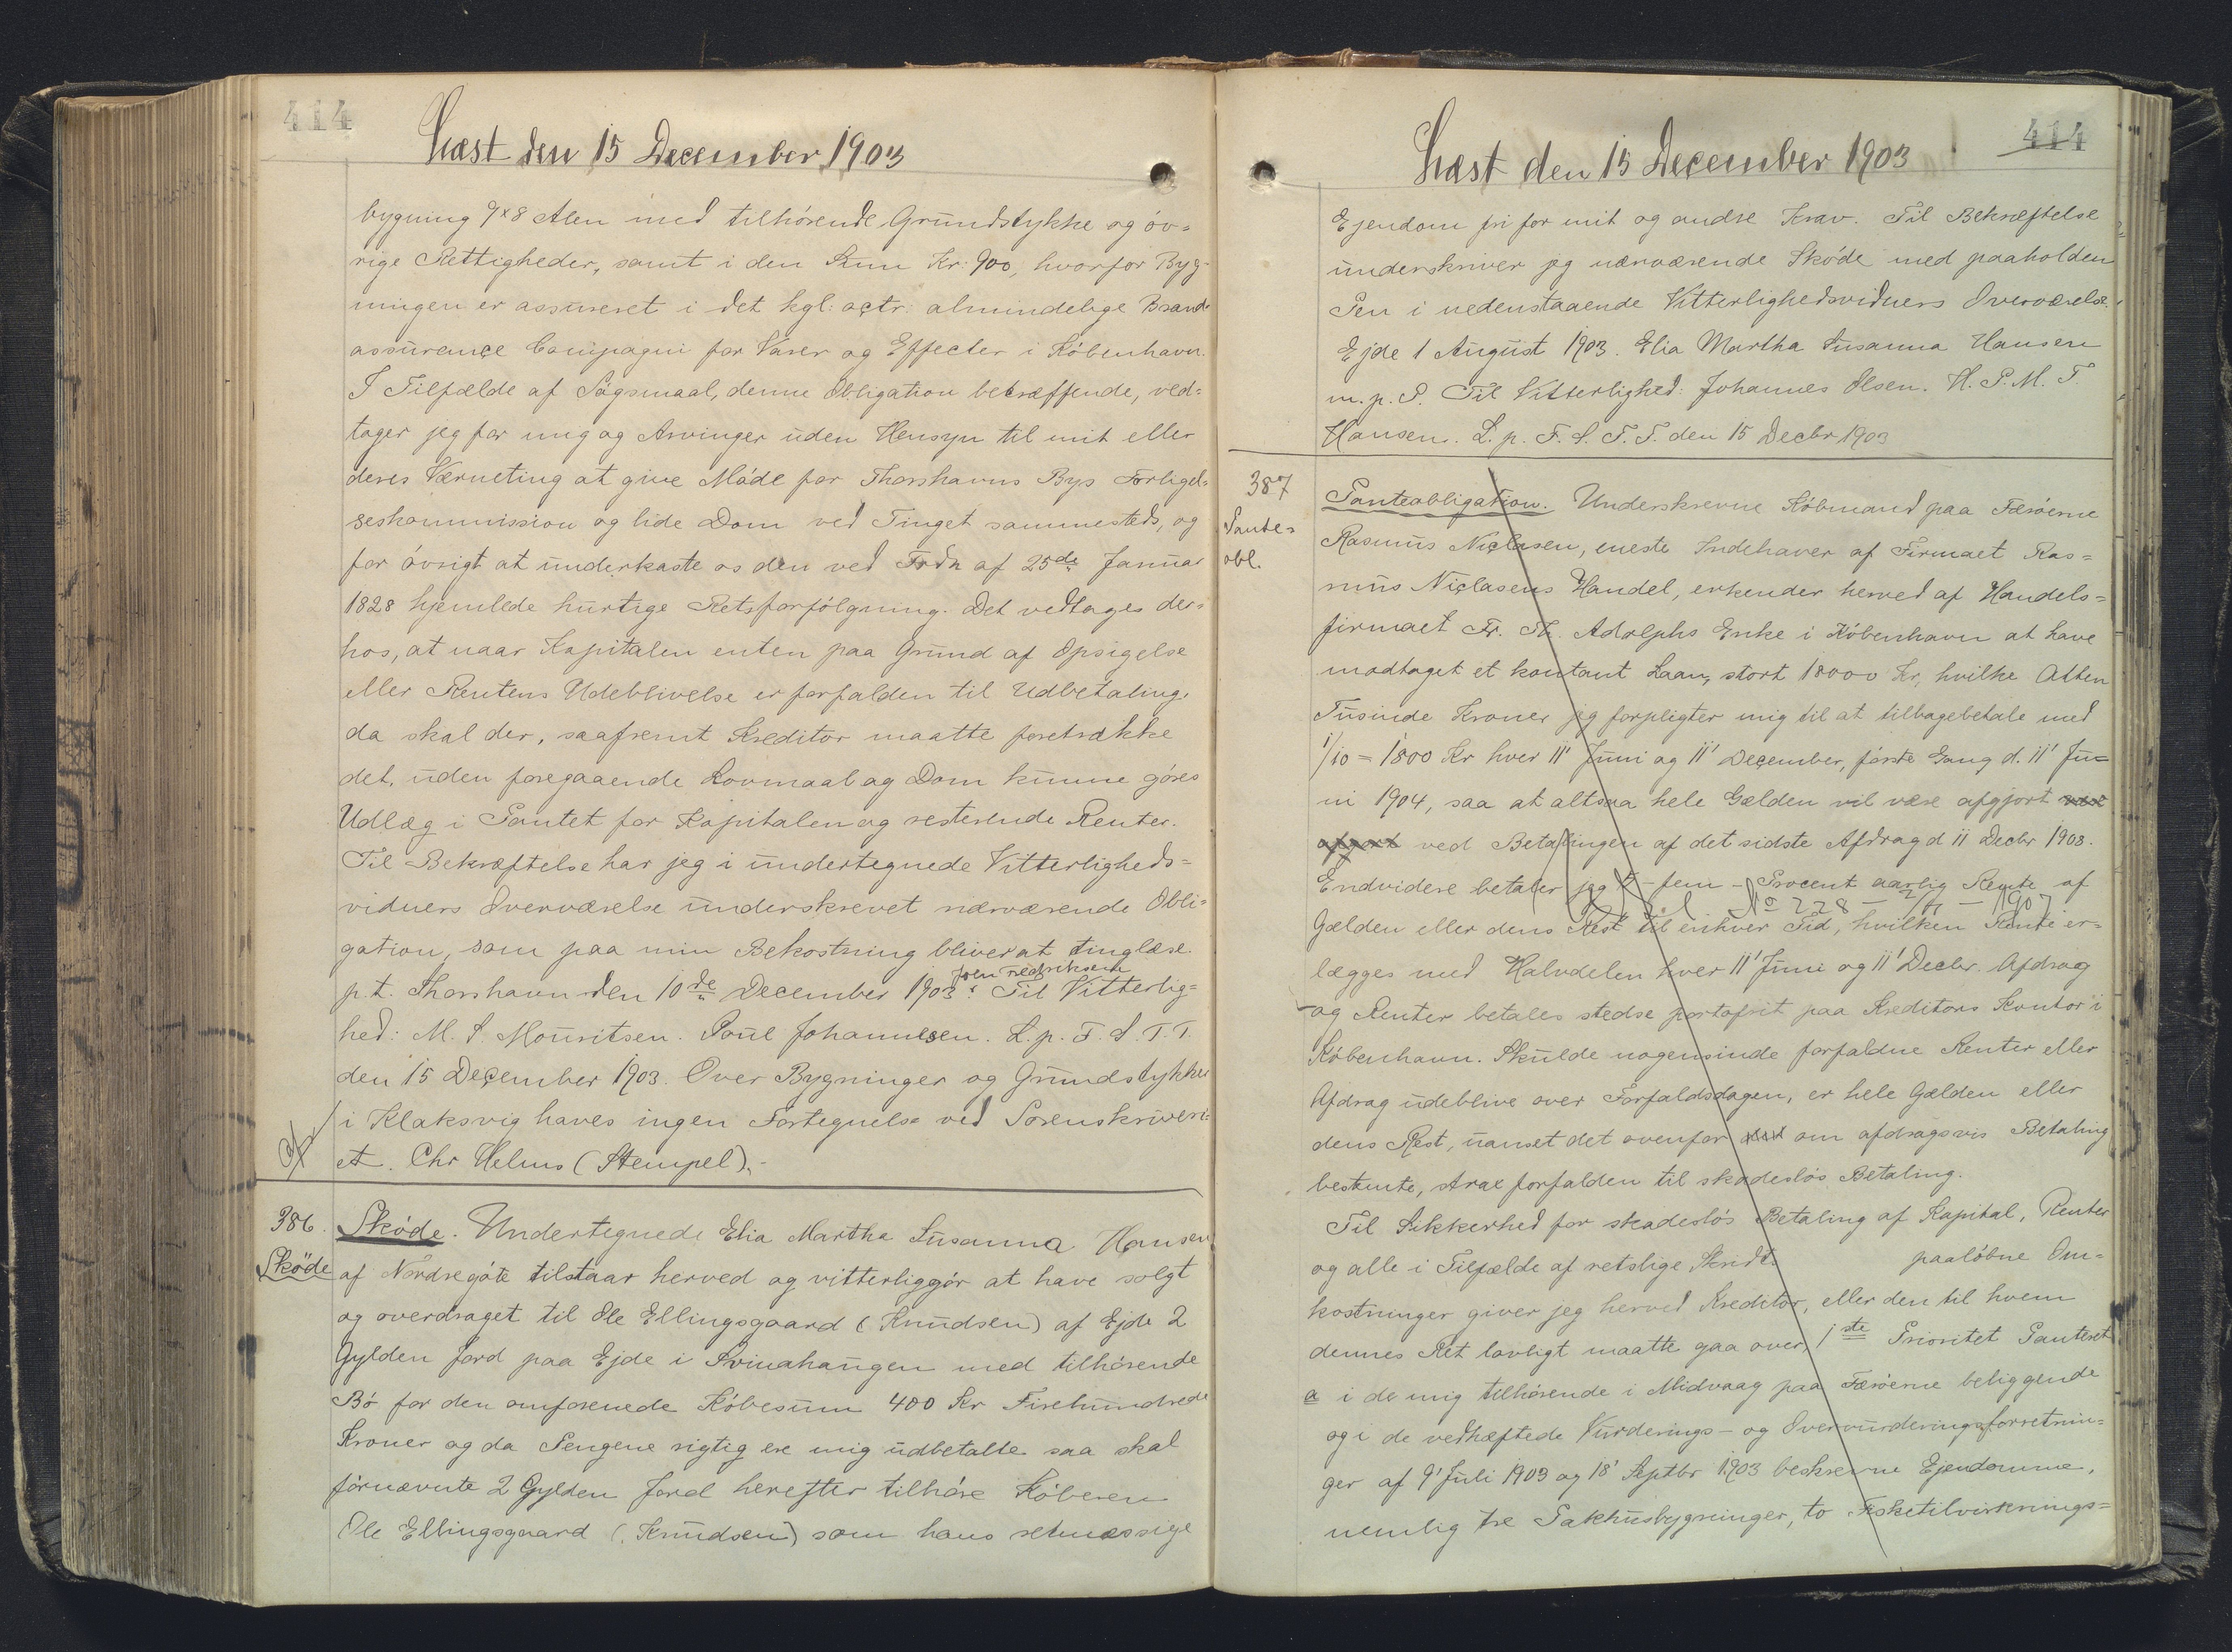 414
Læst den 15 December 1903
bygning 9x8 Alen med tilhörende Grundstykke og öv=
rige Rettigheder, samt i den Sum Kr: 900, hvorfor Byg-
ningen er assureret i det kgl: octr: almindelige Brand-
assurance Compagni for Varer og Effecter i Köbenhavn.
I Tilfælde af Sögsmaal, denne Obligation betræffende, ved=
tager jeg for mig og Arvinger uden Hensyn til mit eller
deres Værneting at give Möde for Thorshavns Bys Forligel=
seskommission og lide Dom ved Tinget sammesteds, og
for övrigt at underkaste os den ved Frdn af 25de Januar
1828 hjemlede hurtige Retsforfölgning. Det vedtages der=
hos, at naar Kapitalen enten paa Grund af Opsigelse
eller Rentens Udeblivelse er forfalden til Udbetaling,
da skal der, saafremt Kreditor maatte foretrække
det, uden foregaaende Lovmaal og Dom kunne göres
Udlæg i Pantet for Kapitalen og resterende Renter.
Til Bekræftelse har jeg i undertegnede Vitterligheds=
vidners Overværelse underskrevet nærværende Obli=
gation, som paa min Bekostning bliver at tinglæse.
Joen Fredriksen
p.t. Thorshavn den 10de December 1903. Til Vitterlig=
hed: M. S. Mouritsen. Poul Johannesen. L. p. F. S. T. T.
den 15 December 1903. Over Bygninger og Grundstykker
i Klaksvig haves ingen Fortegnelse ved Sorenskriveri=
et. Chr Helms (Stempel).-
386.
Sköde
Sköde. Undertegnede Elia Martha Susanna Hansen
af Nordregöte tilstaar herved og vitterliggör at have solgt
og overdraget til Ole Ellingsgaard (Knudsen) af Ejde 2
Gylden Jord paa Ejde i Svinahaugen med tilhörende
Bö for den omforenede Köbesum 400 Kr Firehundrede
Kroner og da Pengene rigtig ere mig udbetalte saa skal
förnævnte 2 Gylden Jord herefter tilhöre Köberen
Ole Ellingsgaard (Knudsen) som hans retmæssige
414
Læst den 15 December 1903
Ejendom fri for mit og andre Krav. Til Bekræftelse
underskriver jeg nærværende Sköde med paaholden
Pen i nedenstaaende Vitterlighedsvidners Overværelse.
Ejde 1 August 1903. Elia Martha Susanna Hansen
m. p. P. Til Vitterlighed: Johannes Olsen. H. P. M. T.
Hansen. L. p. F. S. T. T. den 15 Decbr 1903
387
Pante=
obl.
Panteobligation. Underskrevne Köbmand paa Færöerne
Rasmus Niclasen, eneste Indehaver af Firmaet Ras=
mus Niclasens Handel, erkender herved af Handels=
firmaet Fr. Th. Adolphs Enke i Köbenhavn at have
modtaget et kontant Laan, stort 18000 Kr, hvilke Atten
Tusinde Kroner jeg forpligter mig til at tilbagebetale med
1/10 = 1800 Kr hver 11' Juni og 11' December, förste Gang d. 11' Ju=
ni 1904, saa at altsaa hele Gælden vil være afgjort
ved Betalingen af det sidste Afdrag d 11 Decbr 1908.
Endvidere betaler jeg 5 - fem - Procent aarlig Rente af
No 228 - 2/ - 1907
Gælden eller dens Rest til enhver Tid, hvilken Rente er=
lægges med Halvdelen hver 11' Juni og 11' Decbr. Afdrag
og Renter betales stedse portofrit paa Kreditors Kontor i
Köbenhavn. Skulde nogensinde forfaldne Renter eller
Afdrag udeblive over Forfaldsdagen, er hele Gælden eller
dens Rest, uanset det ovenfor om afdragsvis Betaling
bestemte, strax forfalden til skadeslös Betaling.
Til Sikkerhed for skadeslös Betaling af Kapital, Renter
og alle i Tilfælde af retslige Skridt paalöbne Om=
kostninger giver jeg herved Kreditor, eller den til hvem
dennes Ret lovligt maatte gaa over, 1ste Prioritet Panteret
a i de mig tilhörende i Midvaag paa Færöerne beliggende
og i de vedhæftede Vurderings- og Overvurderingsforretnin=
ger af 9' Juli 1903 og 18' Septbr 1903 beskrevne Ejendomme,
nemlig tre Pakhusbygninger, to Fisketilvirknings=